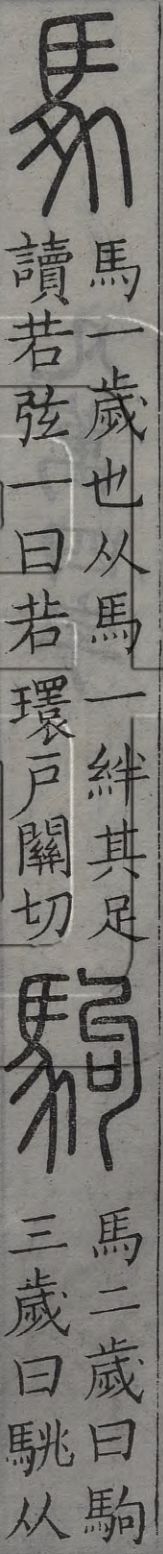 馬一歲也从馬一絆其足
讀若弦一曰若環戶關切
駒
馬二歲曰駒
三歲曰駣从